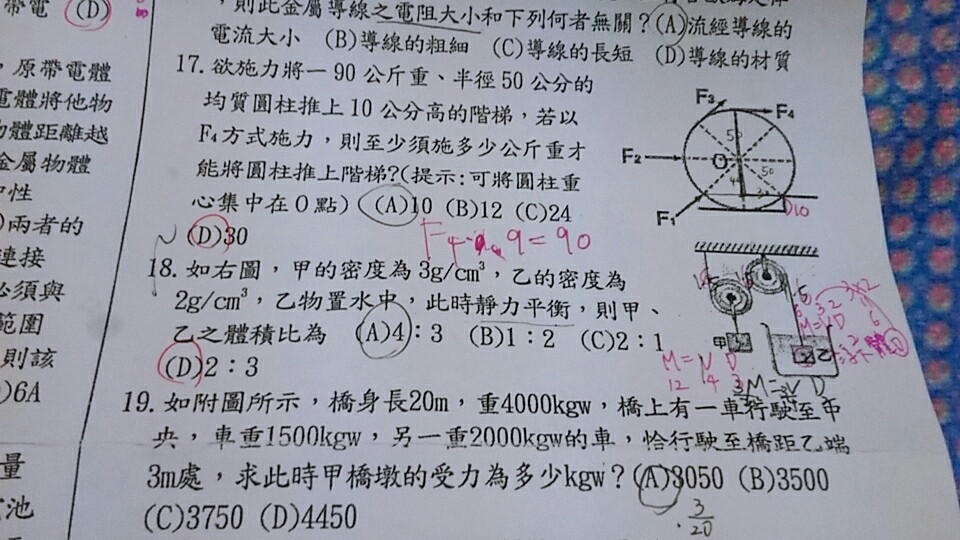 帶電 (D)
，原帶電體
電體將他物
物體距離越
金屬物體
中性
)兩者的
連接
必須與
範圍
則該
)6A
量
電池
，則此金屬導線之電阻大小和下列何者無關？(A)流經導線的
電流大小 (B)導線的粗細 (C)導線的長短 (D)導線的材質
17. 欲施力將一 90 公斤重、半徑 50 公分的
均質圓柱推上 10 公分高的階梯，若以
F₄ 方式施力，則至少須施多少公斤重才
能將圓柱推上階梯?(提示:可將圓柱重
心集中在 O 點) (A)10 (B)12 (C)24
(D)30
F₄ 9 = 90
F₃
F₄
F₂
F₁
O
50
50
10
18. 如右圖，甲的密度為 3g/cm³，乙的密度為
2g/cm³，乙物置水中，此時靜力平衡，則甲、
乙之體積比為 (A)4：3 (B)1：2 (C)2：1
(D)2：3
甲
乙
M=VD
6 3 2
3×2
6
M = V D
12 4 3
M=VD
19. 如附圖所示，橋身長20m，重4000kgw，橋上有一車行駛至中
央，車重1500kgw，另一重2000kgw的車，恰行駛至橋距乙端
3m處，求此時甲橋墩的受力為多少kgw？(A)3050 (B)3500
(C)3750 (D)4450
3
20